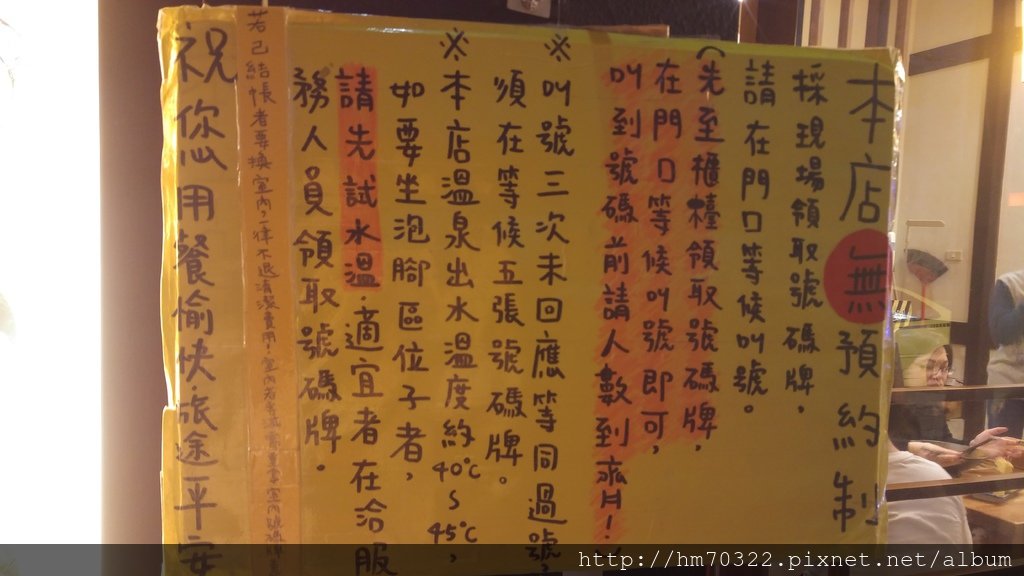 本店無預約制
採現場領取號碼牌,
請在門口等候叫號。
(先至櫃檯領取號碼牌,
在門口等候叫號即可,
叫到號碼前請人數到齊!
※叫號三次未回應等同過號,
須在等候五張號碼牌。
※本店溫泉出水溫度約40℃~45℃,
如要坐泡腳區位子者,
請先試水溫.適宜者在洽服
務人員領取號碼牌。
若已結帳者要換室內,一律不退清潔費用,
祝您用餐愉快旅途平安
http://hm70322.pixnet.net/album